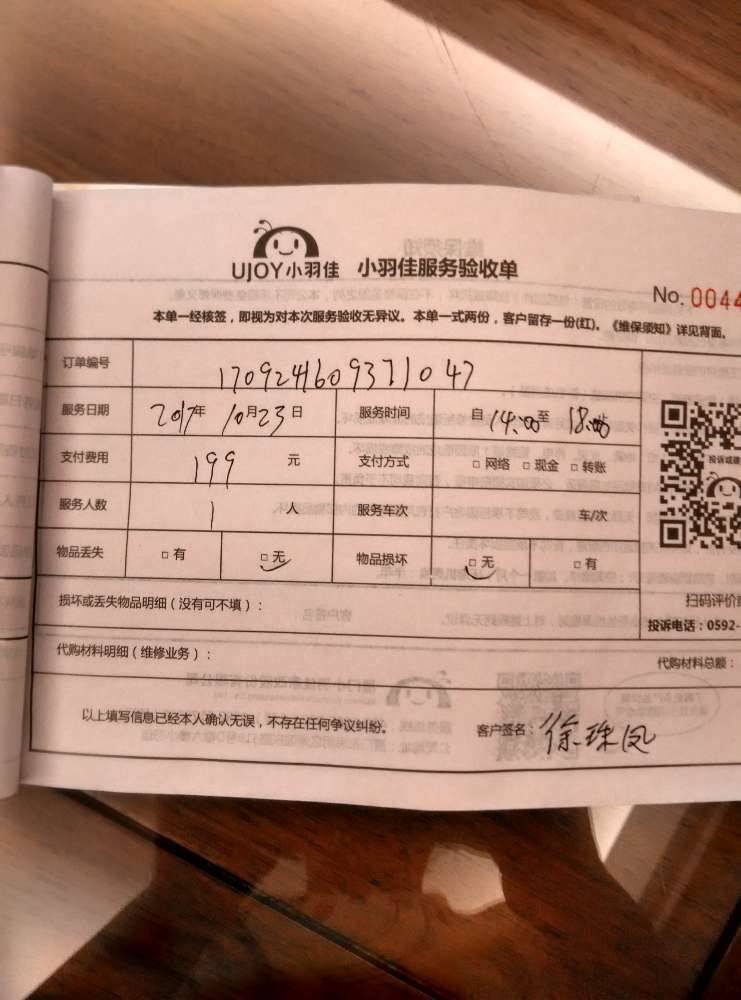 UJOY小羽佳 小羽佳服务验收单
No. 0044
本单一经核签，即视为对本次服务验收无异议。本单一式两份，客户留存一份(红)。《维保须知》详见背面。
订单编号 1709241609371047
服务日期 2017年 10月23日 服务时间 自 14:00 至 18:00
支付费用 199 元 支付方式 □ 网络 □ 现金 □ 转账
服务人数 1 人 服务车次 车/次
物品丢失 □ 有 □ 无 物品损坏 □ 无 □ 有
投诉或建
扫码评价
损坏或丢失物品明细（没有可不填）：
投诉电话：0592-
代购材料明细（维修业务）： 代购材料总额：
以上填写信息已经本人确认无误，不存在任何争议纠纷。 客户签名：徐珠凤